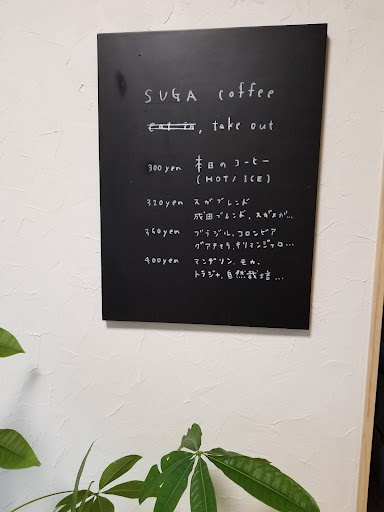 SUGA coffee
eat in, take out
300yen 本日のコーヒー
(HOT/ICE)
320yen スガブレンド
成田ブレンド、スガよが...
350yen ブラジル、コロンビア
グアテマラ、キリマンジャロ...
400yen マンデリン、モカ、
トラジャ、自然栽培...